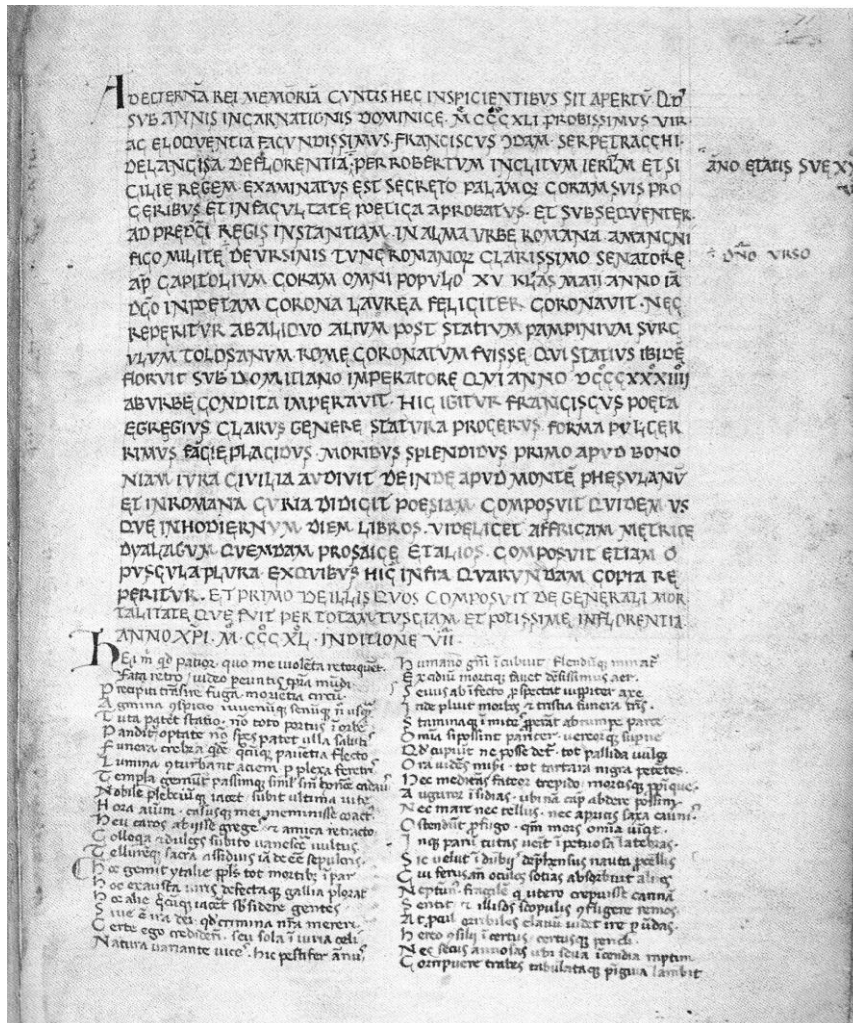 ADETERNĀ REI MEMORIĀ CVNTIS HEC INSPICIENTIBVS SIT APERTṼ QD̓
SVB ANNIS INCARNATIONIS DOMINICE MCCCXLI PROBISSIMVS VIR
AC ELOQVENTIA FACVNDISSIMVS FRANCISCVS QDAM SERPETRACCHI
DELANCISA DEFLORENTIA PERROBERTVM INCLITVM IERLM̄ ET SI
CILIE REGEM EXAMINATVS EST SECRETO PALAMQ; CORAM SVIS PRO
CERIBVS ET IN FACVLTATE POETICA APROBATVS · ET SVBSEQVENTER
AD PREDC̄I REGIS INSTANTIAM IN ALMA VRBE ROMANA AMANGNI
FICO MILITE DEVRSINIS TVNC ROMANOR CLARISSIMO SENATORE
AP̄ CAPITOLIVM CORAM OMNI POPVLO XV KL̄AS MAII ANNO IĀ
DC̄O INPOETAM CORONA LAVREA FELICITER CORONAVIT · NEC
REPERITVR ABALIQVO ALIVM POST STATIVM PAMPINIVM SVRC
VLVM TOLOSANVM ROME CORONATVM FVISSE QVI STATIVS IBIDĒ
FLORVIT SVB DOMITIANO IMPERATORE QVI ANNO DCCCXXXIIII
ABVRBE CONDITA IMPERAVIT · HIC IGITVR FRANCISCVS POETA
EGREGIVS CLARVS GENERE STATVRA PROCERVS FORMA PVLCER
RIMVS FACIE PLACIDVS MORIBVS SPLENDIDVS PRIMO APVD BONO
NIAM IVRA CIVILIA AVDIVIT DEINDE APVD MONTĒ PHESVLANṼ
ET INROMANA CVRIA DIDICIT POESIAM COMPOSVIT QVIDEM VS
QVE INHODIERNVM DIEM LIBROS · VIDELICET AFFRICAM METRICE
DYALAGVM QVEMDAM PROSAICE ET ALIOS · COMPOSVIT ETIAM O
PVSCVLA PLVRA EXQVIBVS HIC INFRA QVARVNDAM COPIA RE
PERITVR · ET PRIMO DEILLIS QVOS COMPOSVIT DE GENERALI MOR
TALITATE QVE FVIT PER TOTAM TVSCIAM ET POTISSIME INFLORENTIA
ANNO XPI · M · CCC XL · INDITIONE VII ·
ĀNO ETATIS SVE
DN̄O VRSO
Hei m̄ qd patior quo me violēta retorquet
Fata retro video pereuntis tp̄ra mūdi
Agmina conspicio iuvenūq; senūq;
Tuta patet statio nō toto portus ī orbe
Panditur optate nō spes patet ulla salutis
Funera crebra qdē quocūq; paventia flecto
Lumina conturbant aciem perplexa feretris
Templa gemūt passimq;
Nobile plebeiūq; iacet subit ultima vite
Hora animum casusq; mei meminisse coact̓
Heu caros abiisse greges et amica retracto
Colloqa et dulces subito vanescē vultus
Telluremq; sacrā assiduis iā deēē sepulcris
Hoc gemit ytalie ppls tot mortib; ī par
Hoc exausta viris defectaq; gallia plorat
Hoc alie qcūq; iacēt sb sidere gentes
Sive ē ira dei qd crimina nr̄a mereri
Certe ego crediderī seu sola ī iuria celi
Natura variante vices hic pestifer ānus
Humano gn̄i ī cubuit flendūq; minat̄
Exitiū mortiq; favet dēsissimus aer
Sevus ab īfecto pspectat iuppiter axe
Inde pluit morbos et tristia funera
Staminaq; ī mite pperāt abrumpe parce
Omia si possint pariter vereorq; supne
Ora vidēs nisi tot tartara nigra petētes
Hec meditās fateor trepido mortisq; ppīque
Auguror īsidias ubi nā cap abdere possim
Nec mare nec tellus nec
Ostendūt pfugo qm̄ mors omia vīcit
Sic velut ī dubiis dephensus nauta pcellis
Cui ferus an̄ oculos sotias absorbuit alnos
Neptun̓ fragileq; utero crepuisse carinā
Sentit et illisos scopulis confugere remos
Hereo consilii ī certus certusq; pericli
Nec secus annosas ubi seva īcendia raptim
Corripuere trabes tabulataq; pīguia lambit